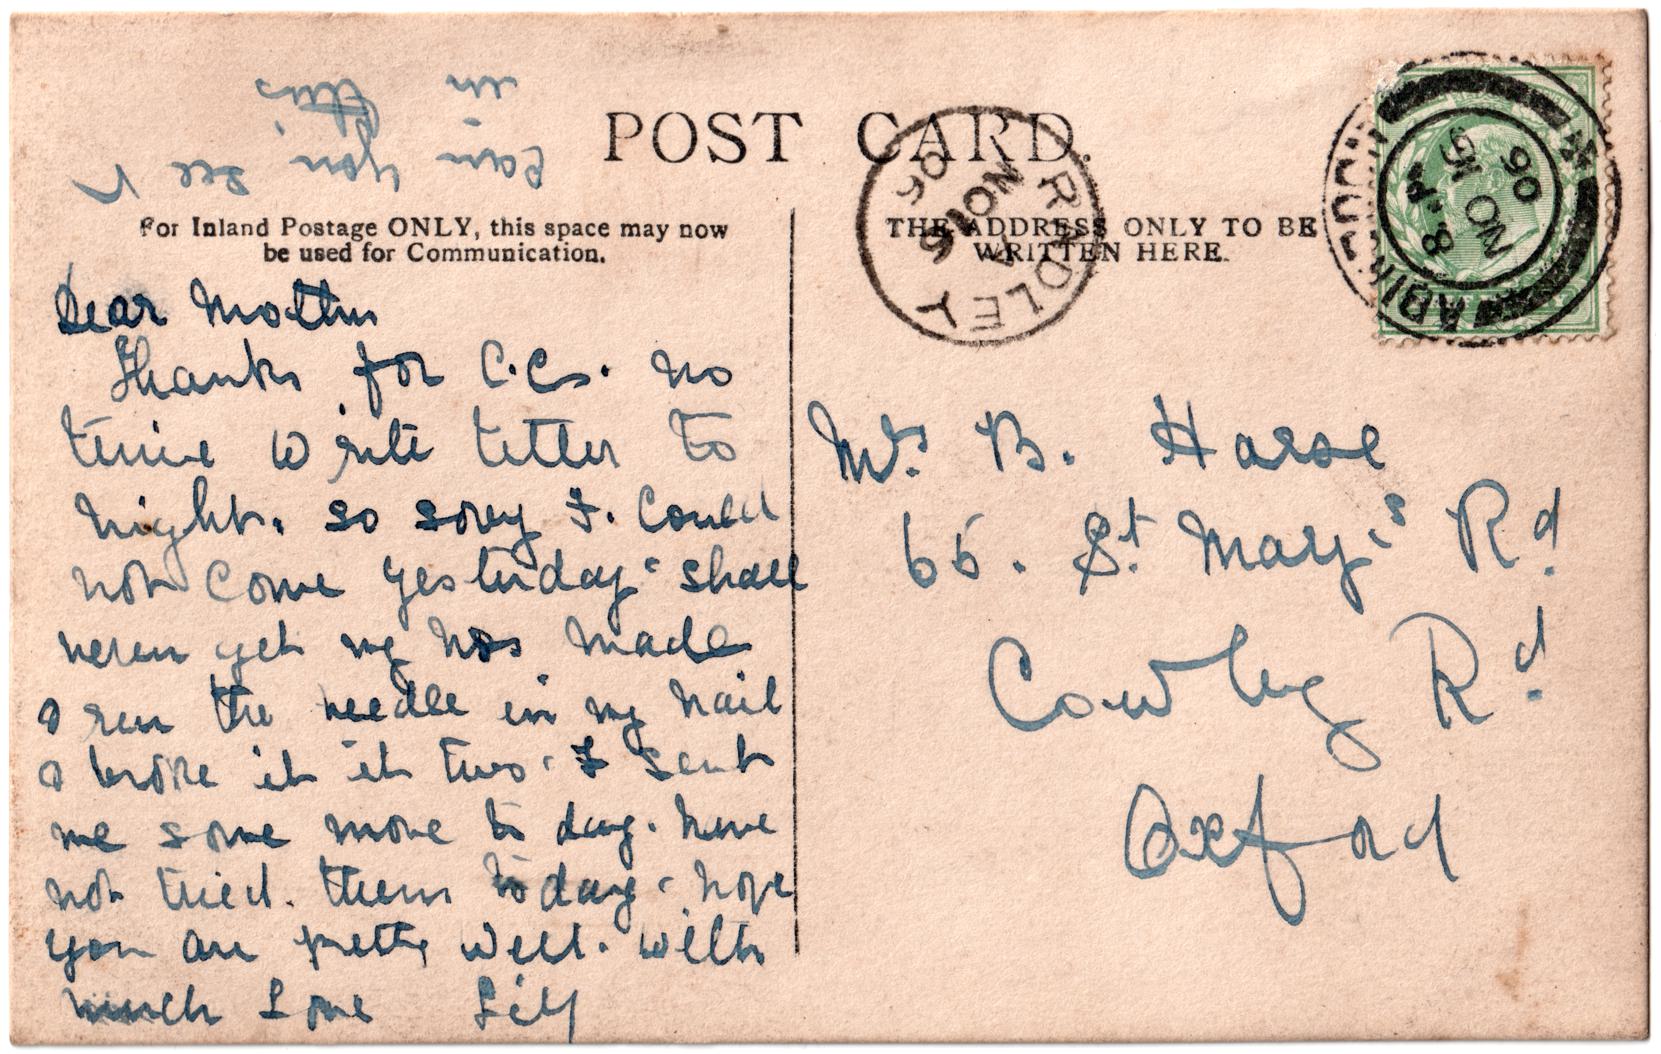 can you see
in this
POST CARD.
For Inland Postage ONLY, this space may now
be used for Communication.
THE ADDRESS ONLY TO BE
WRITTEN HERE.
RADLEY
NO 15
06
ABINGDON
8. P
NO 15
06
Dear Mother
Thanks for C.Cs. no
time write letter to
night. so sorry I. could
not come yesterday. shall
never get my made
I run the needle in my nail
& broke it it two. sent
me some more to day. have
not tried. them to day. hope
you are pretty well. with
much Love Lily
Mrs. B. Harse
65. St. Mary's Rd.
Cowley Rd.
Oxford